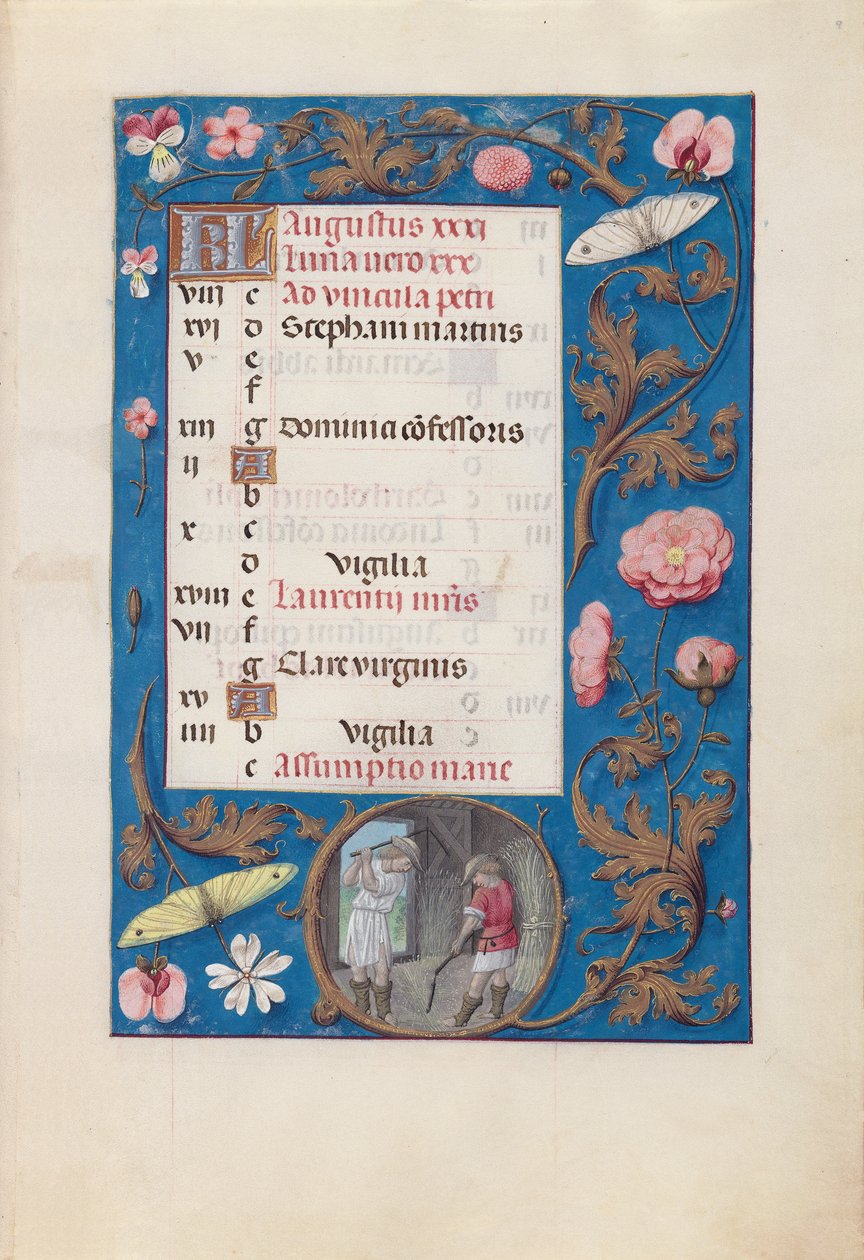 KL Augustus xxxj
Luna uero xxx
viij c Ad vincula petri
xvj d Stephani martiris
v e
f
xiij g Dominici cōfessoris
ij A
b
x c
d vigilia
xviij e Laurentij mr̄is
vij f
g Clare virginis
xv A
iiij b vigilia
c Assumptio marie